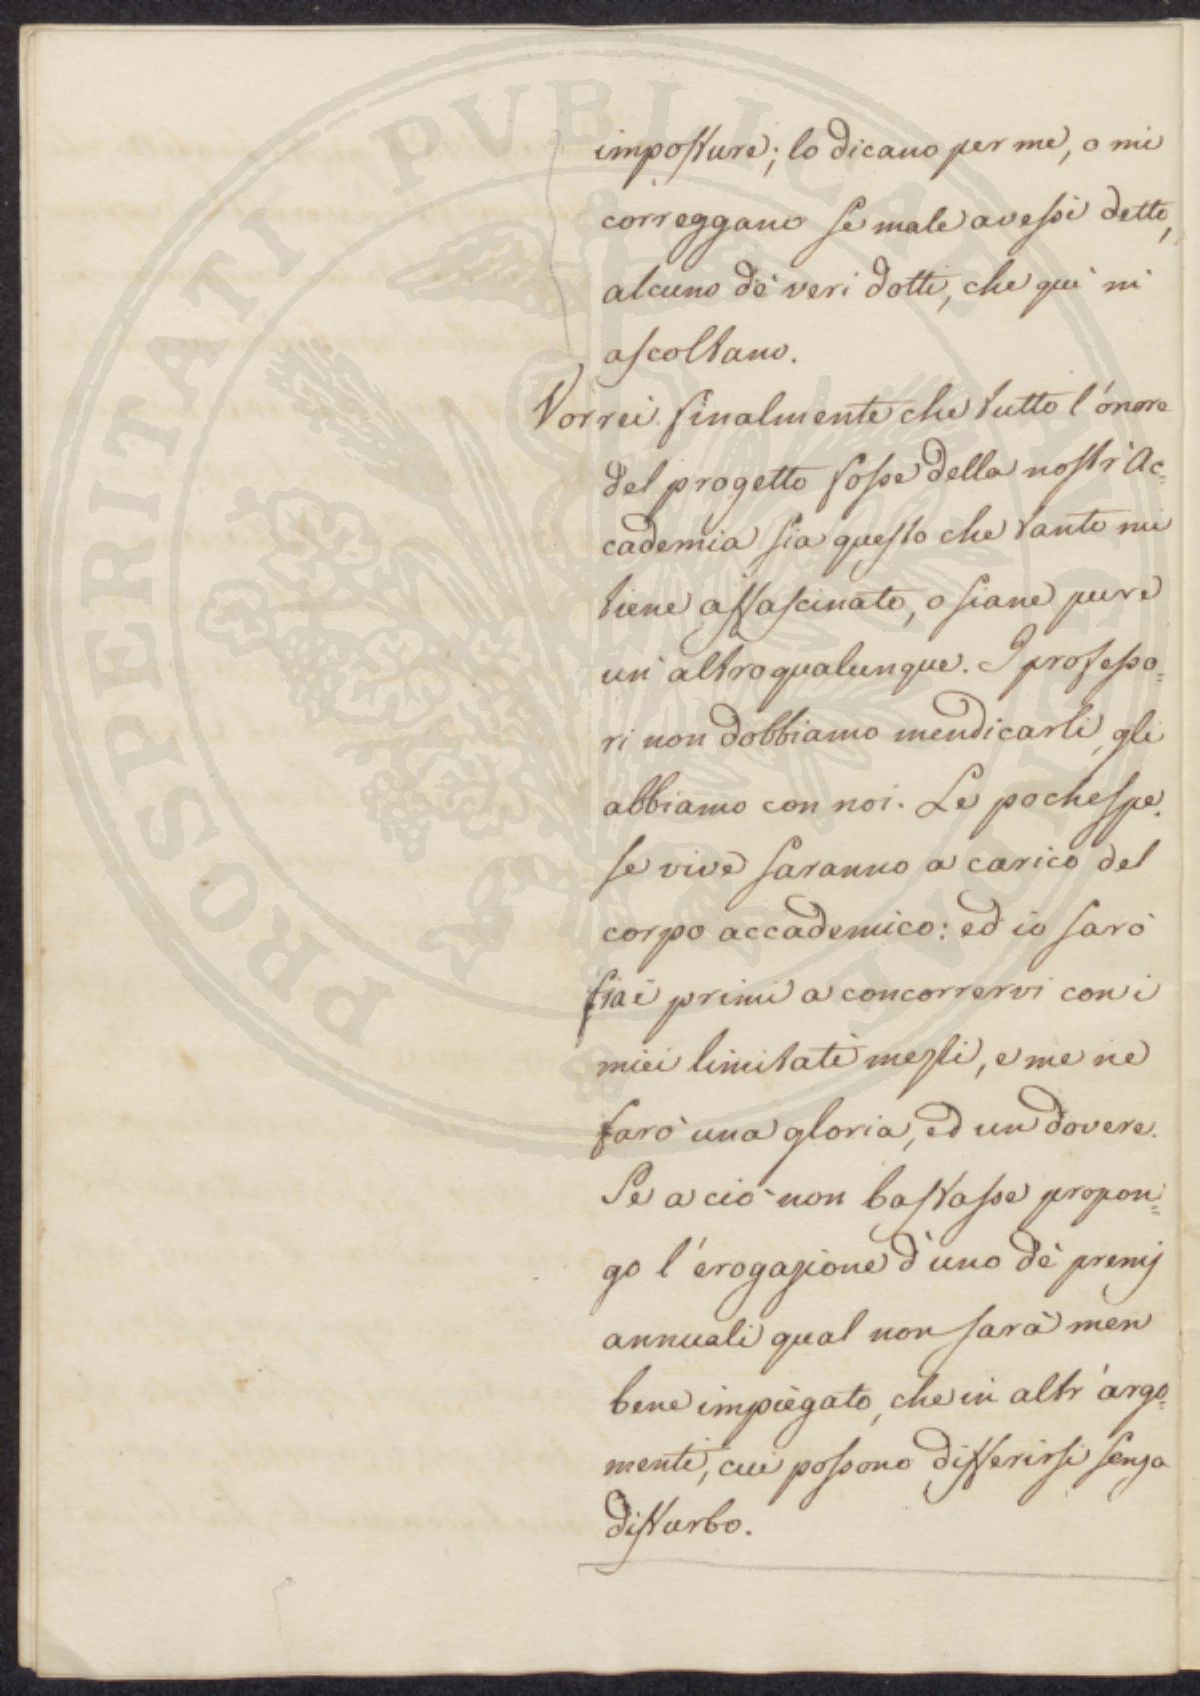 imposture; lo dicano per me, o mi
correggano se male avessi detto,
alcuno de' veri dotti, che quì mi
ascoltano.
Vorrei finalmente che tutto l'onore
del progetto fosse della nostr'Ac=
cademia sia questo che tanto mi
tiene affascinato, o siane pure
un'altro qualunque. I professo=
ri non dobbiamo mendicarli, gli
abbiamo con noi. Le poche spe=
se vive saranno a carico del
corpo accademico: ed io sarò
fra i primi a concorrervi con i
miei limitati mezzi, e me ne
farò una gloria, ed un dovere.
Se a ciò non bastasse propon=
go l'erogazione d'uno de' premj
annuali qual non sarà men
bene impiegato, che in altr'argo=
menti, cui possono differirsi senza
disturbo.
PROSPERITATI PVBLICAE AVGENDAE